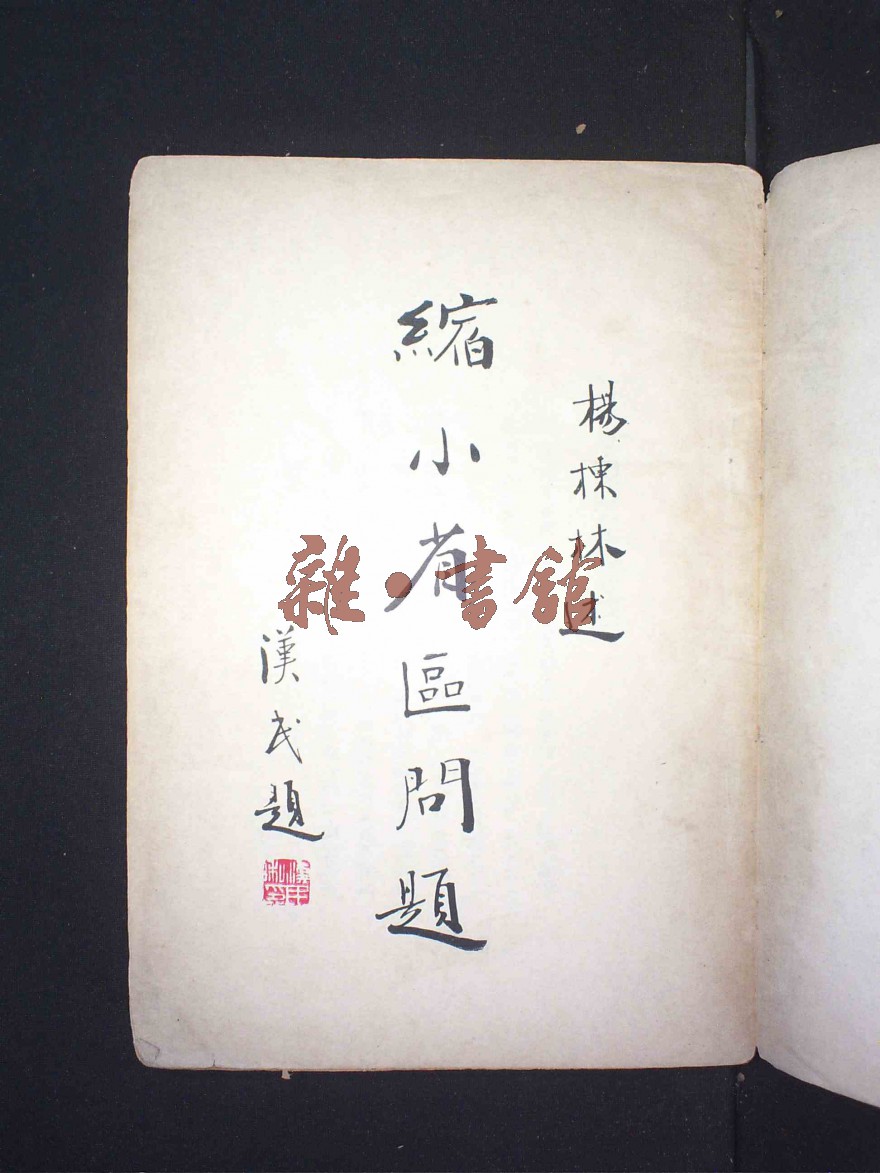 楊棟林述
縮小省區問題
漢民題
雜·書館